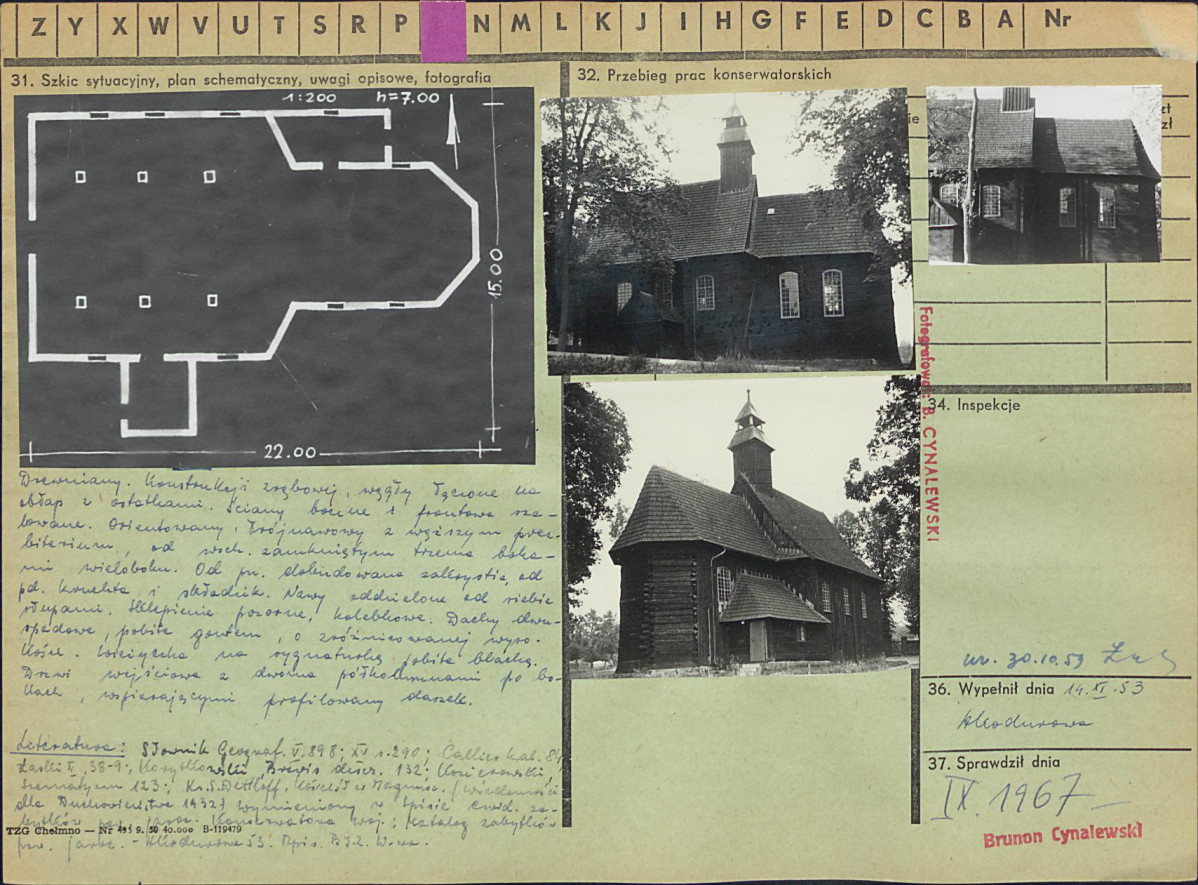 Z Y X W V U T S R P N M L K J I H G F E D C B A Nr
31. Szkic sytuacyjny, plan schematyczny, uwagi opisowe, fotografia
1:200 h=7.00
15.00
22.00
Drewniany. Konstrukcji zrębowej, węgły łączone na
obłap z ostatkami. Ściany boczne i frontowa sza-
lowane. Orientowany, trójnawowy z węższym prez-
biterium, od wsch. zamkniętym trzema boka-
mi wieloboku. Od pn. dobudowana zakrystia, od
pd. kruchta i składzik. Nawy oddzielone od siebie
słupami. Sklepienie pozorne, kolebkowe. Dachy dwu-
spadowe, pobite gontem, o zróżnicowanej wyso-
kości. Wieżyczka na sygnaturkę pobita blachą.
Drzwi wejściowe z dwoma półkolumnami po bo-
kach, wspierającymi profilowany daszek.
Literatura: Słownik Geograf. V, 898; XV s. 290; Callier
Łaski II, 38-9; Korytkowski, Brevis descr. 132; Kozierowski,
Szematyzm 123; Ks. S. Dettloff, Kościół w (Wiadomości
dla Duchowieństwa 1932) wymieniony w Spisie ewid. za-
bytków pow. jaroc. Konserwatora woj.; Katalog zabytków
pow. jaroc. - 53.
TZG Chełmno — Nr 9. 50 40.000 B-119479
32. Przebieg prac konserwatorskich
ie
zł
zł
Fotografował: B. CYNALEWSKI
34. Inspekcje
30.10.59
36. Wypełnił dnia 14.XI.53
37. Sprawdził dnia
IX. 1967
Brunon Cynalewski